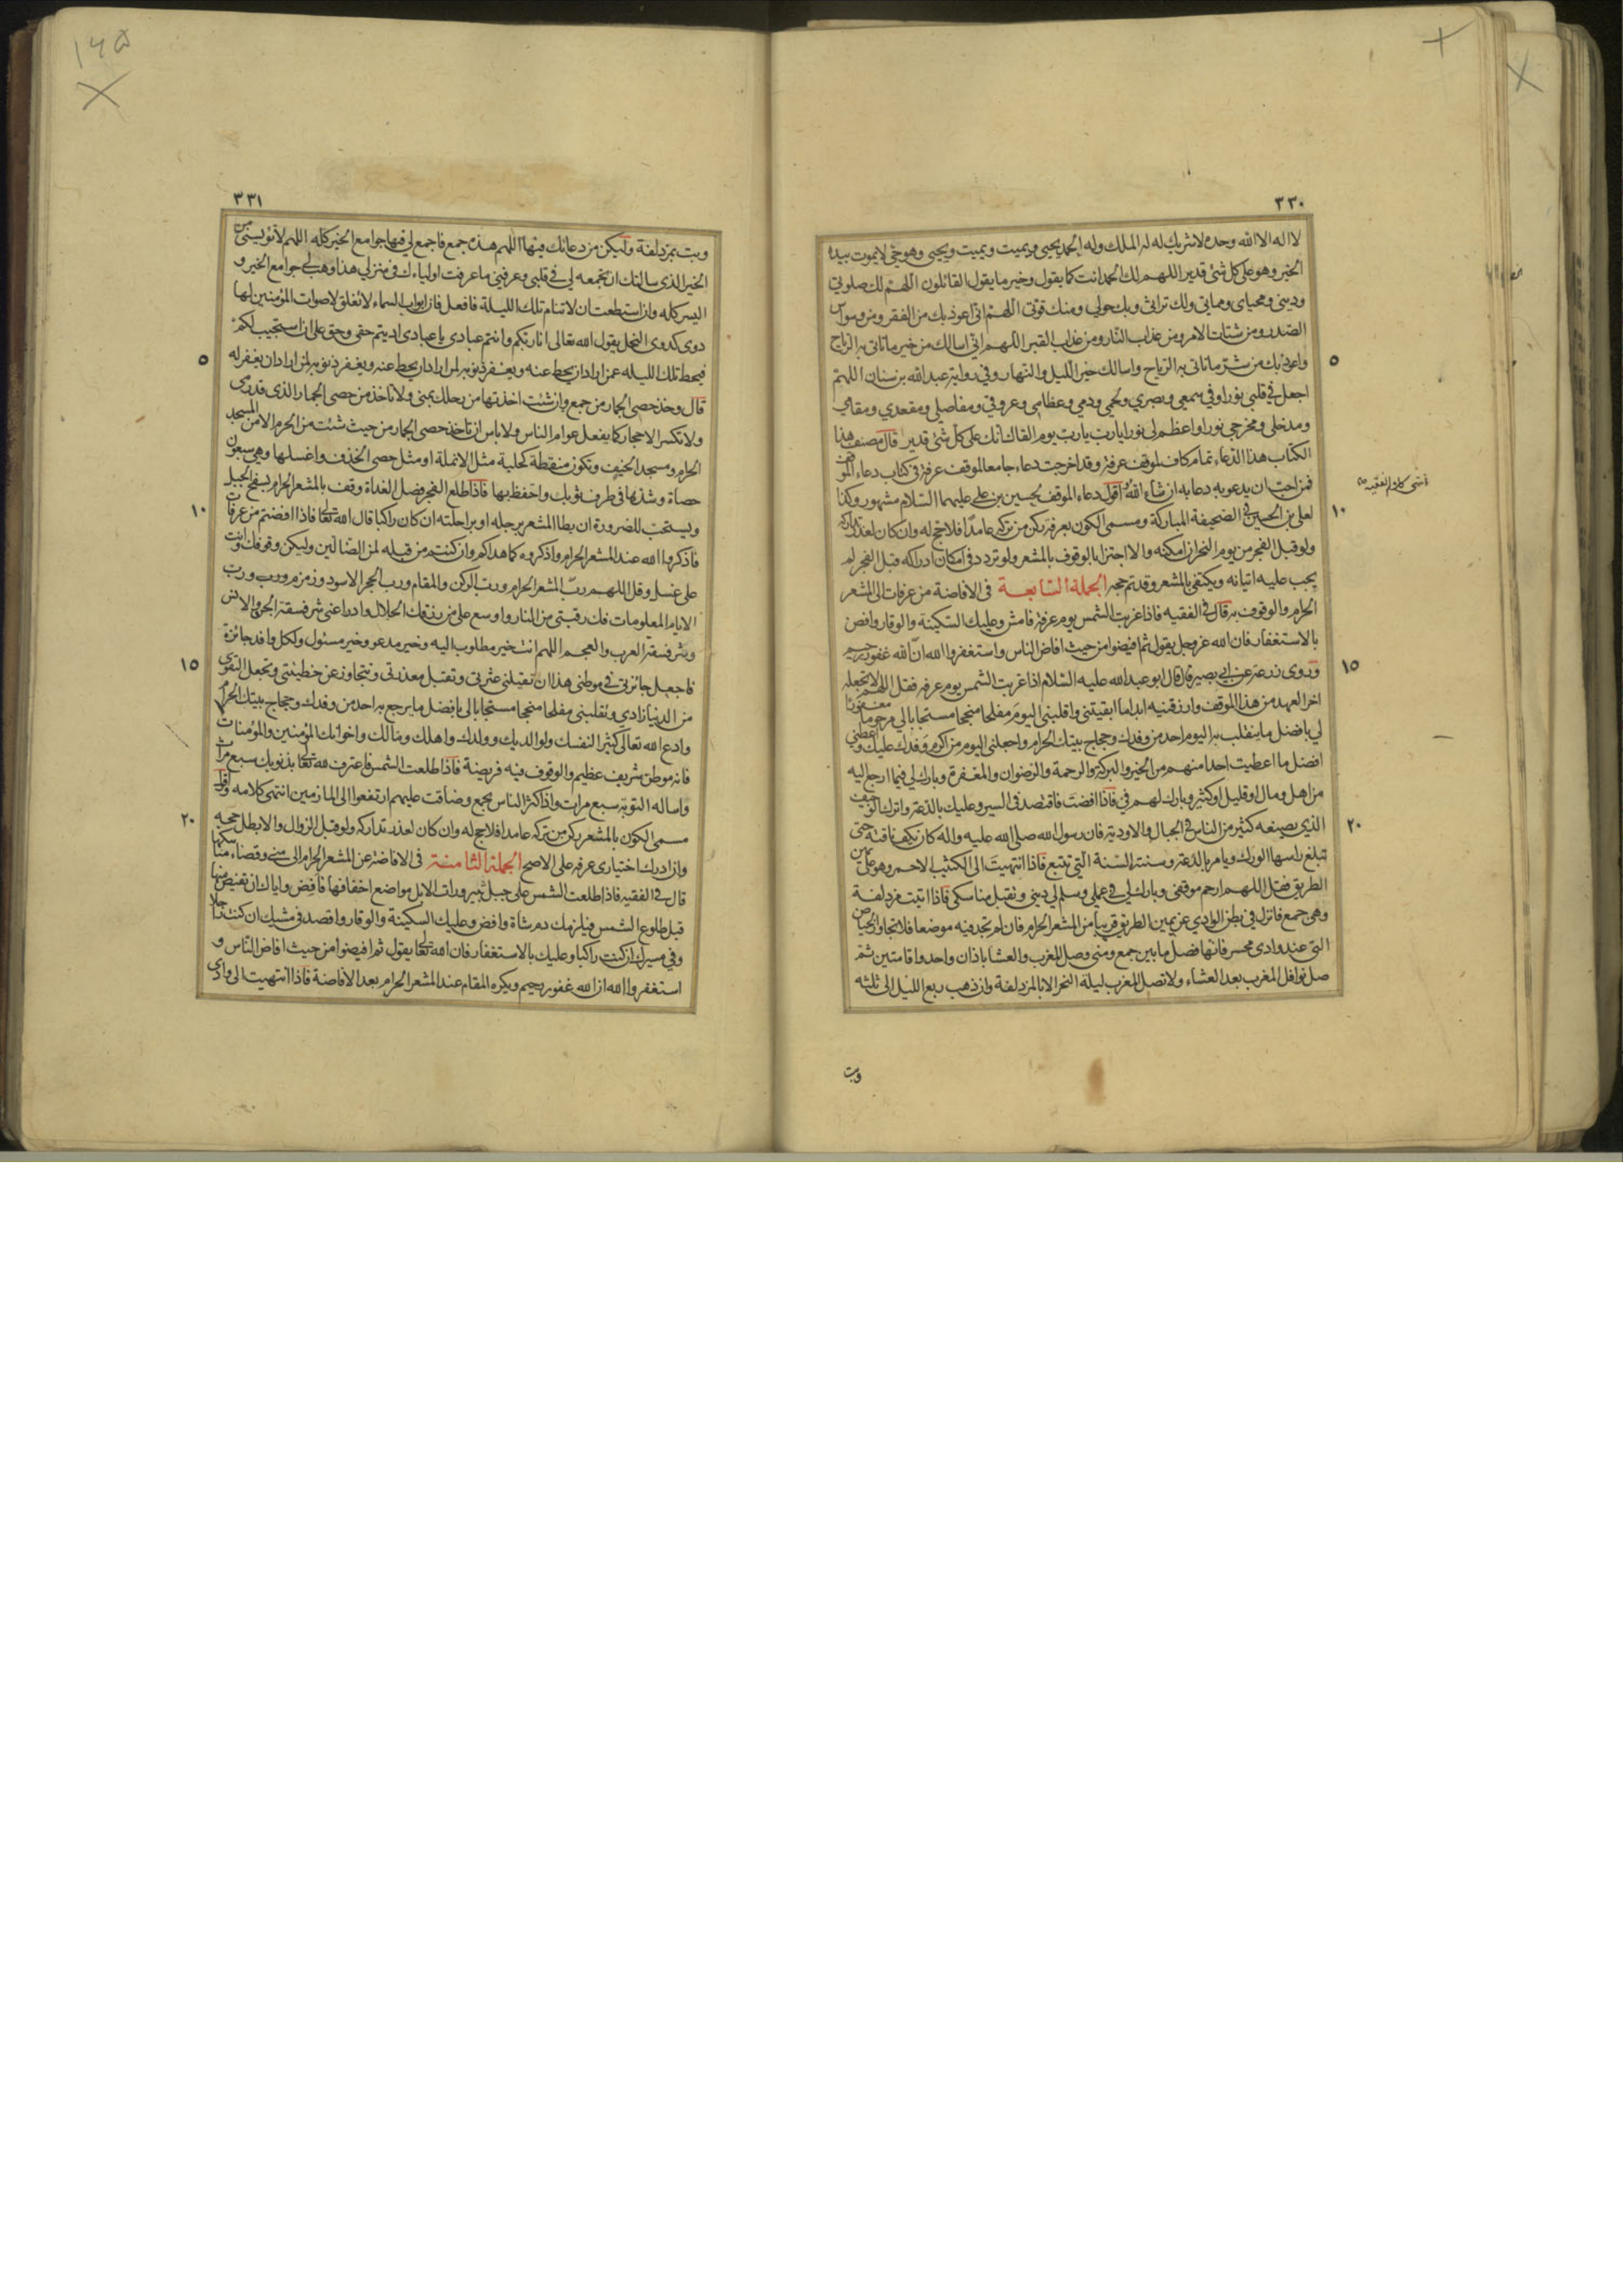 ٣٣٠
لا اله الا الله وحده لا شريك له له الملك وله الحمد يحيى ويميت ويميت ويحيى وهو حى لا يموت بيده
الخير وهو على كل شئ قدير اللهم لك الحمد انت كما يقول وخير ما يقول القائلون اللهم لك صلوتى
ودينى ومحياى ومماتى ولك تراثى وبك حولى ومنك قوتى اللهم انى اعوذ بك من الفقر ومن وسواس
الصدر ومن شتات الامر ومن عذاب النار ومن عذاب القبر اللهم انى اسالك من خير ما تاتى به الرياح
٥
واعوذ بك من شر ما تاتى به الرياح واسالك خير الليل والنهار وفي رواية عبد الله بن سنان اللهم
اجعل في قلبي نورا وفي سمعي وبصري ولحمي ودمي وعظامي وعروقي ومفاصلي ومقعدي ومقامي
ومدخلي ومخرجي نورا واعظم لى نورا يارب يارب يوم القاك انك على كل شئ قدير قال مصنف هذا
الكتاب هذا الدعاء تمام كاف لموقف عرفة وقد اخرجت دعاء جامعا لموقف عرفة في كتاب دعاء الموقف
فمن احب ان يدعو به دعا به ان شاء الله اقول دعاء الموقف لحسين بن على عليهما السلام مشهور وكذا
انتهى كلام الفقيه
١٠
لعلى بن الحسين في الصحيفة المباركة ومسمى الكون بعرفة ركن من تركه عامدا فلا حج له وان كان لعذر تداركه
ولو قبل الفجر من يوم النحر ان امكنه والا اجتزا بالوقوف بالمشعر ولو تردد في امكان ادراكه قبل الفجر لم
يجب عليه اتيانه ويكتفى بالمشعر وقد تم حجه الجملة السابعة في الافاضة من عرفات الى المشعر
الحرام والوقوف به قال في الفقيه فاذا غربت الشمس يوم عرفة فامش وعليك السكينة والوقار وافض
بالاستغفار فان الله عز وجل يقول ثم افيضوا من حيث افاض الناس واستغفروا الله ان الله غفور رحيم
١٥
وروى زرعة عن ابي بصير قال قال ابو عبد الله عليه السلام اذا غربت الشمس يوم عرفة فقل اللهم لا تجعله
اخر العهد من هذا الموقف وارزقنيه ابدا ما ابقيتنى واقلبنى اليوم مفلحا منجحا مستجابا لي مرحوما مغفورا
لي بافضل ما ينقلب به اليوم احد من وفدك وحجاج بيتك الحرام واجعلنى اليوم من اكرم وفدك عليك واعطني
افضل ما اعطيت احدا منهم من الخير والبركة والرحمة والرضوان والمغفرة وبارك لي فيما ارجع اليه
من اهل ومال او قليل او كثير وبارك لهم في فاذا افضت فاقتصد في السير وعليك بالدعة واترك الوجيف
٢٠
الذي يصنعه كثير من الناس في الجبال والاودية فان رسول الله صلى الله عليه واله كان يكف ناقته حتى
تبلغ راسها الورك ويامر بالدعة وسنته السنة التي تتبع فاذا انتهيت الى الكثيب الاحمر وهو على يمين
الطريق فقل اللهم ارحم موقفى وبارك لي في عملي وسلم لي ديني وتقبل مناسكى فاذا اتيت مزدلفة
وهى جمع فانزل في بطن الوادي عن يمين الطريق قريبا من المشعر الحرام فان لم تجد فيه موضعا فلا تجاوز الحياض
التى عند وادى محسر فانها فصل ما بين جمع ومنى وصل المغرب والعشا باذان واحد واقامتين ثم
صل نوافل المغرب بعد العشاء ولا تصل المغرب ليلة النحر الا بالمزدلفة وان ذهب ربع الليل الى ثلثه
وبت
٣٣١
وبت بمزدلفة وليكن من دعائك فيها اللهم هذه جمع فاجمع لي فيها جوامع الخير كله اللهم لا تؤيسنى من
الخير الذى سالتك ان تجمعه لي في قلبى وعرفنى ما عرفت اولياءك في منزلي هذا وهب لي جوامع الخير و
اليسر كله وان استطعت ان لا تنام تلك الليلة فافعل فان ابواب السماء لا تغلق لاصوات المؤمنين لها
دوى كدوى النحل يقول الله تعالى انا ربكم وانتم عبادى يا عبادى اديتم حقى وحق على ان استجيب لكم
٥
فيحط تلك الليلة عمن اراد ان يحط عنه ويغفر ذنوبه لمن اراد ان يحط عنه ويغفر ذنوبه لمن اراد ان يغفر له
قال وخذ حصى الجمار من جمع وان شئت اخذتها من رحلك بمنى ولا تاخذ من حصى الجمار الذى قد رمى
ولا تكسر الاحجار كما يفعل عوام الناس ولا باس ان تاخذ حصى الجمار من حيث شئت من الحرم الا من المسجد
الحرام ومسجد الخيف وتكون منقطة كحلية مثل الانملة او مثل حصى الخذف واغسلها وهي سبعون
حصاة وشدها في طرف ثوبك واحفظ بها فاذا طلع الفجر فصل الغداة وقف بالمشعر الحرام بسفح الجبل
١٠
ويستحب للصرورة ان يطا المشعر برجله او براحلته ان كان راكبا قال الله تعا فاذا افضتم من عرفات
فاذكروا الله عند المشعر الحرام واذكروه كما هداكم وان كنتم من قبله لمن الضالين وليكن وقوفك وانت
على غسل وقل اللهم رب المشعر الحرام ورب الركن والمقام ورب الحجر الاسود وزمزم ورب ورب
الايام المعلومات فك رقبتى من النار واوسع على من رزقك الحلال وادرا عنى شر فسقة الجن والانس
وشر فسقة العرب والعجم اللهم انت خير مطلوب اليه وخير مدعو وخير مسئول ولكل وافد جائزة
١٥
فاجعل جائزتى في موطنى هذا ان تقيلنى عثرتى وتقبل معذرتى وتتجاوز عن خطيئتى وتجعل التقوى
من الدنيا زادي وتقلبنى مفلحا منجحا مستجابا لي بافضل ما يرجع به احد من وفدك وحجاج بيتك الحرام
وادع الله تعالى كثيرا لنفسك ولوالديك وولدك واهلك ومالك واخوانك المؤمنين والمؤمنات
فانه موطن شريف عظيم والوقوف فيه فريضة فاذا طلعت الشمس فاعترف لله تعا بذنوبك سبع مرات
واساله التوبة سبع مرات واذا كثر الناس بجمع وضاقت عليهم ارتفعوا الى المازمين انتهى كلامه
٢٠
مسمى الكون بالمشعر ركن من تركه عامدا فلا حج له وان كان لعذر تداركه ولو قبل الزوال والا بطل حجه
وان ادرك اختيارى عرفة على الاصح الجملة الثامنة في الافاضة عن المشعر الحرام الى منى وقضاء مناسكها
قال في الفقيه فاذا طلعت الشمس على جبل ثبير ورات الابل مواضع اخفافها فافض واياك ان تفيض منها
قبل طلوع الشمس فيلزمك دم شاة وافض وعليك السكينة والوقار واقصد في مشيك ان كنت راجلا
وفي مسيرك ان كنت راكبا وعليك بالاستغفار فان الله تعا يقول ثم افيضوا من حيث افاض الناس و
استغفروا الله ان الله غفور رحيم ويكره المقام عند المشعر الحرام بعد الافاضة فاذا انتهيت الى وادى